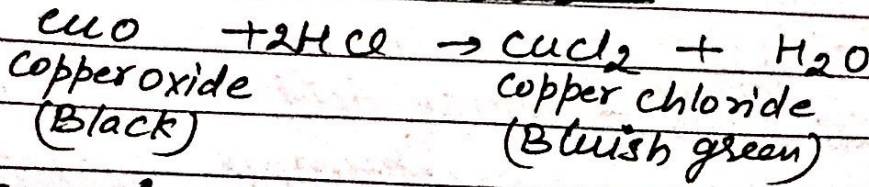 CuO + 2HCl → CuCl2 + H2O
Copper oxide copper chloride
(Black) (Bluish green)